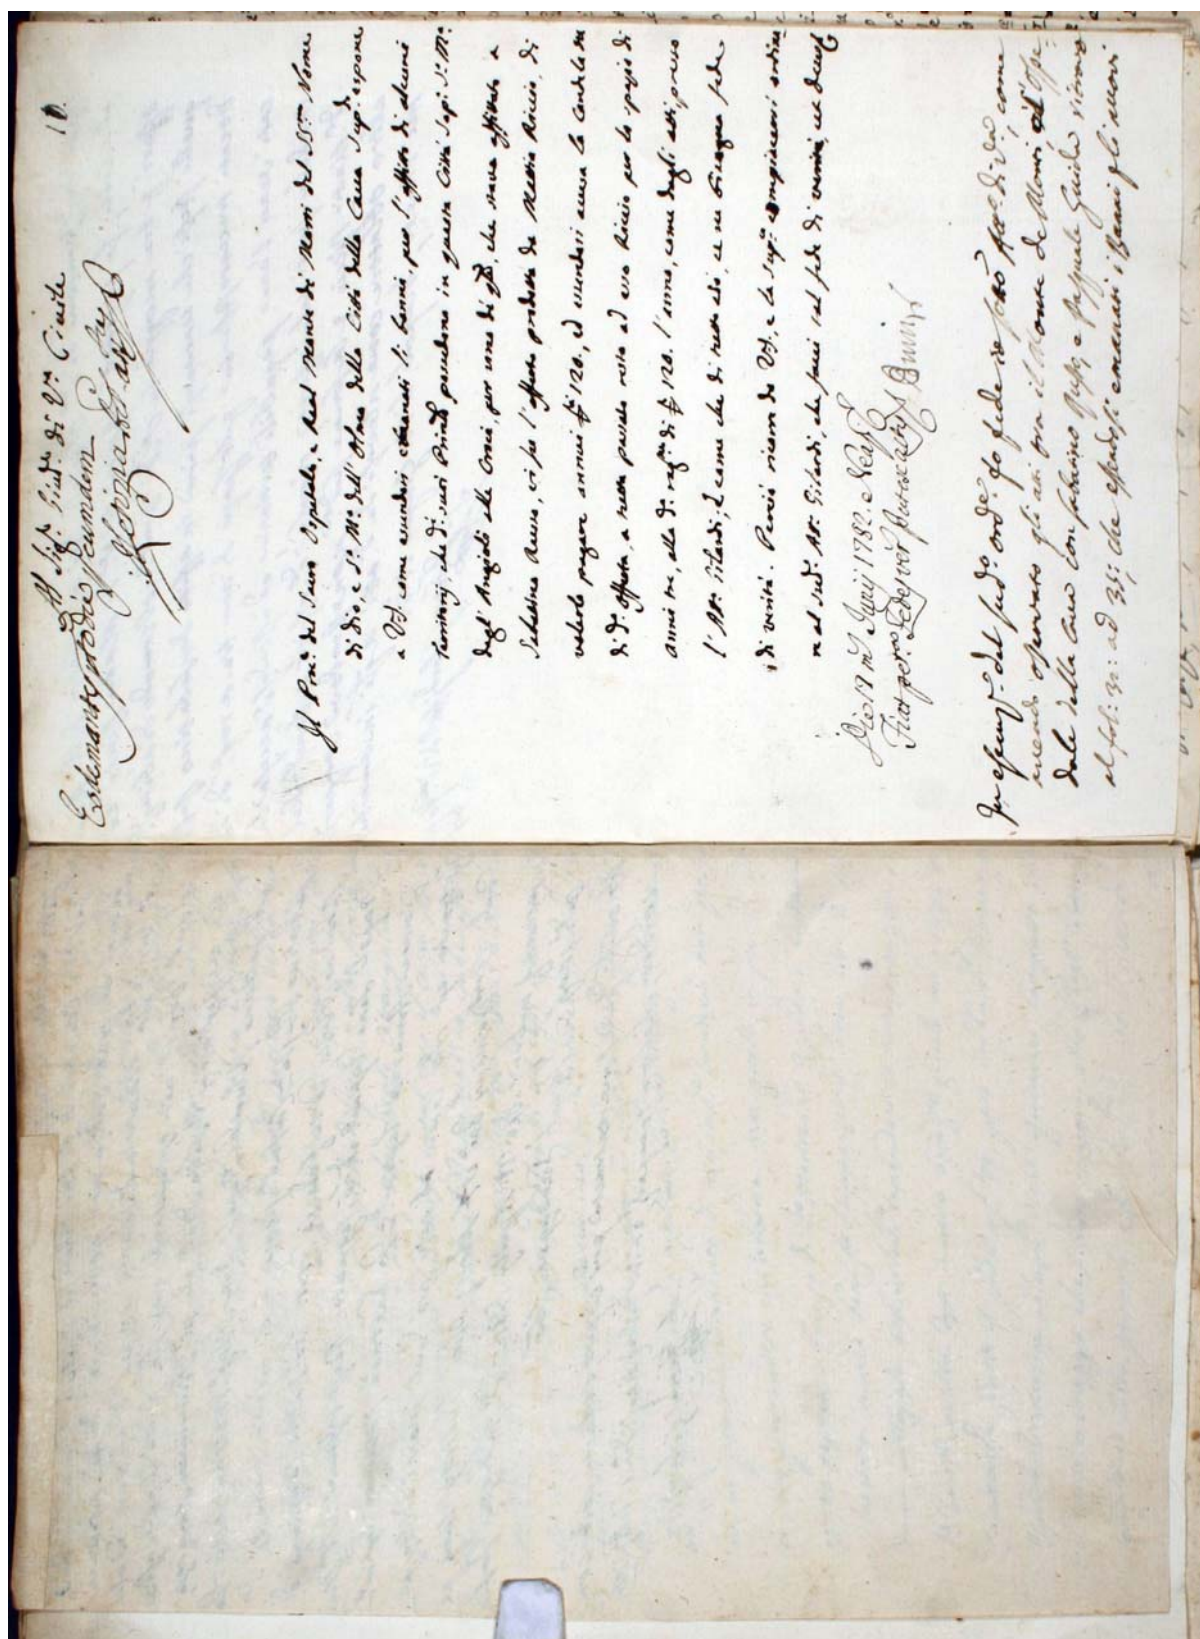 10.
Al Sig.r Giud.e di V.a Civile
Il Proc.re del Sacro Ospedale, e Real Monte di Morti del SS.mo Nome
di Dio, e S.a M.a dell' Olmo della Città della Cava sup.te espone
a V.S. come essendosi emanati li banni, per l'affitto di alcuni
territorj, che d.i suoi Prin.li possedono in questa Città sup.i S.a M.a
degl' Angioli alle Croci, per uno di essi, che stava affittato a
Sebastiano Russo, vi fu l'offerta prodotta da Mattia Riccio, di
volerlo pagare annui 120., ed essendosi accesa la Candela su
di d.a offerta, a nulla passato restò ad esso Riccio per lo spazio di
anni tre, alla d.a rag.ne di 120. l'anno, come dagli atti, presso
l' Att.o Gilardi; E come che di tutto ciò, ce ne bisogna fede
di verità. Perciò ricorre da V.S., e la sup.ca compiacersi ordina
re al sud.o Att.o Gilardi, che facci tal fede di verità, ut Deus
Die 19 m.s Junij 1782. Neap.
Fiat per
In esecuz.e del sud.o ord.e fo fede io sotto Att.o di d.a, come
avendo osservato gli atti tra il Monte de Morti, ed Ospe
dale della Cava con Sabatino Russo, e Pasquale Guida ritrovo
al fol: 32: ad 35: che essendosi emanati i Banni per li nuovi